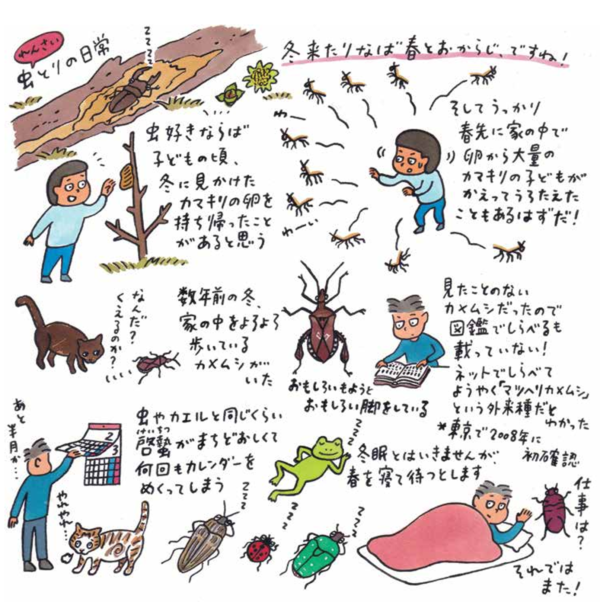 れんさい
虫とりの日常
zzzz
冬来たりなば春とおからじ、ですね!
虫好きならば
子どもの頃、
冬に見かけた
カマキリの卵を
持ち帰ったこと
があると思う
わー
わーい
そしてうっかり
春先に家の中で
卵から大量の
カマキリの子どもが
かえってうろたえた
こともあるはずだ!
なんだ?
くえるのか?
数年前の冬、
家の中をよろよろ
歩いている
カメムシが
いた
おもしろいもようと
おもしろい脚をしている
見たことのない
カメムシだったので
図鑑でしらべるも
載っていない!
ネットでしらべて
ようやく「マツヘリカメムシ」
という外来種だと
わかった
*東京で2008年に
初確認
あと
半月か…
2
3
やれやれ…
虫やカエルと同じくらい
けいちつ
啓蟄がまちどおしくて
何回もカレンダーを
めくってしまう
zzzz
冬眠とはいきませんが、
春を寝て待つとします
zzz
zzz
zzz
仕事は?
それでは
また!